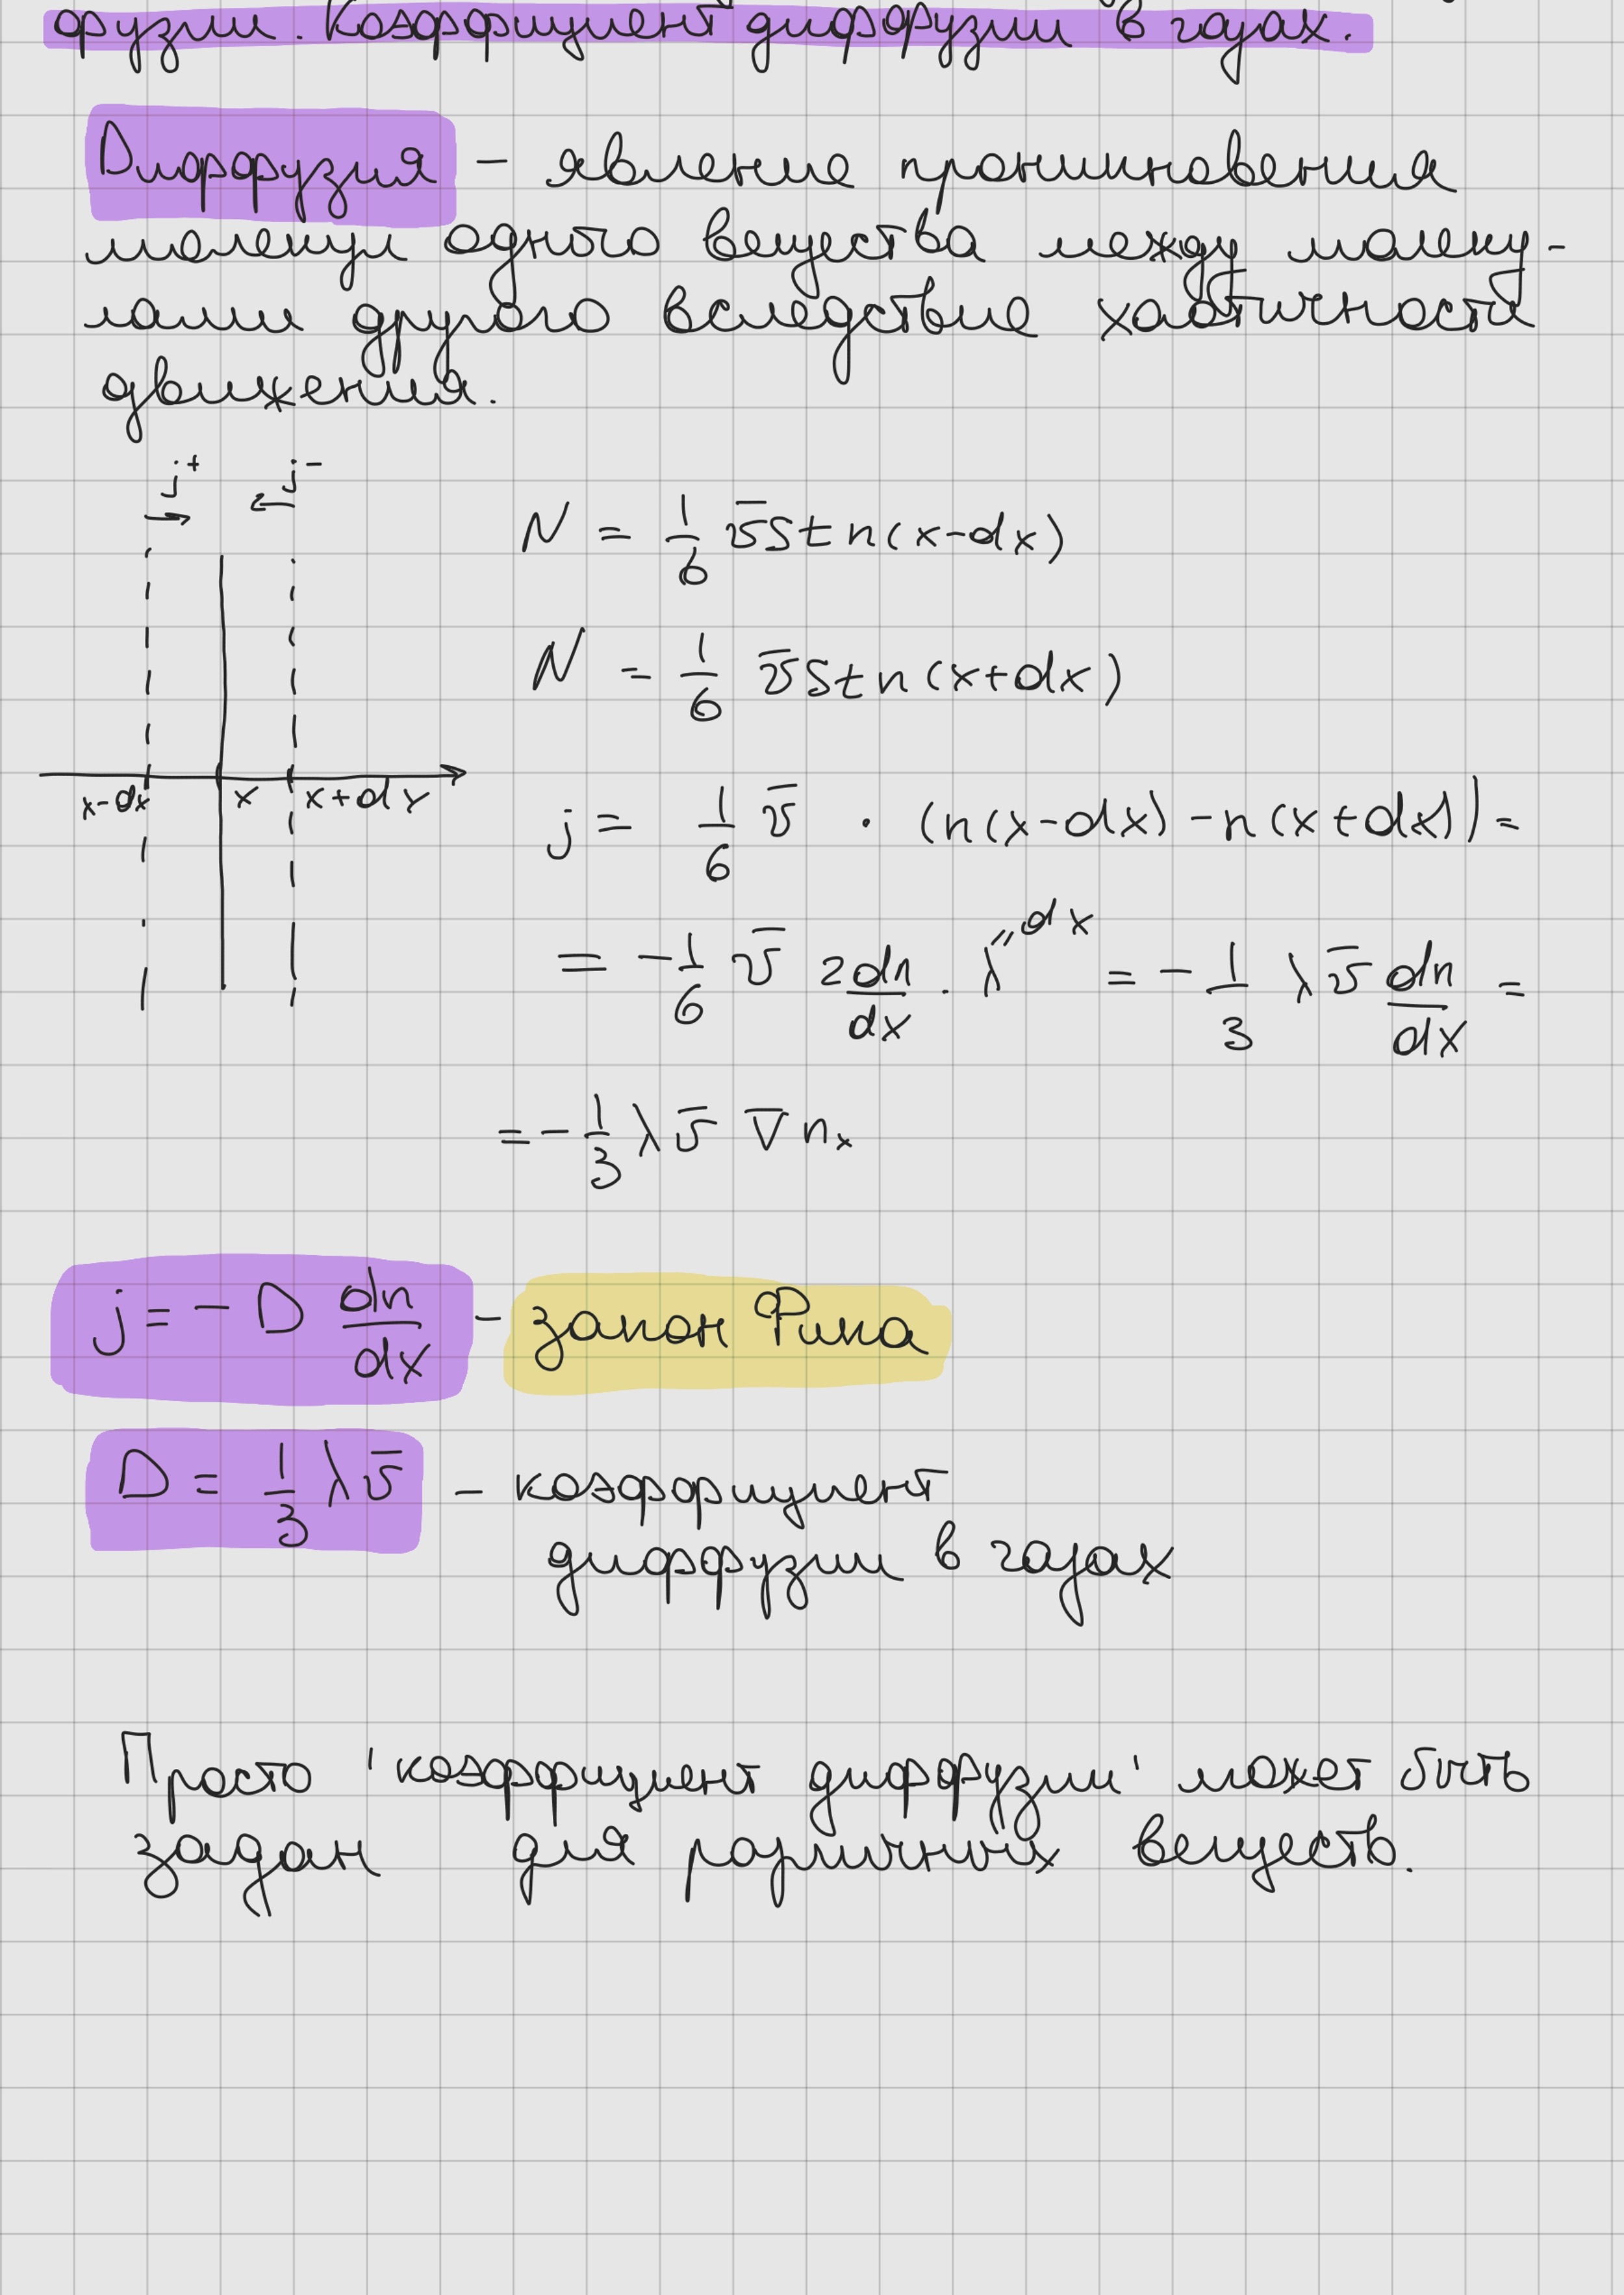 фузии. Коэффициент диффузии в газах.
Диффузия – явление проникновения
молекул одного вещества между молеку-
лами другого вследствие хаотичности
движения.
j⁺ j⁻
N = 1/6 v̄ S t n(x-dx)
N = 1/6 v̄ S t n(x+dx)
x-dx x x+dx
j = 1/6 v̄ · (n(x-dx) - n(x+dx)) =
= -1/6 v̄ 2dn/dx · λ = dx = -1/3 λ v̄ dn/dx =
= -1/3 λ v̄ ∇nₓ
j = - D dn/dx - закон Фика
D = 1/3 λ v̄ – коэффициент
диффузии в газах
Просто 'коэффициент диффузии' может быть
задан для различных веществ.